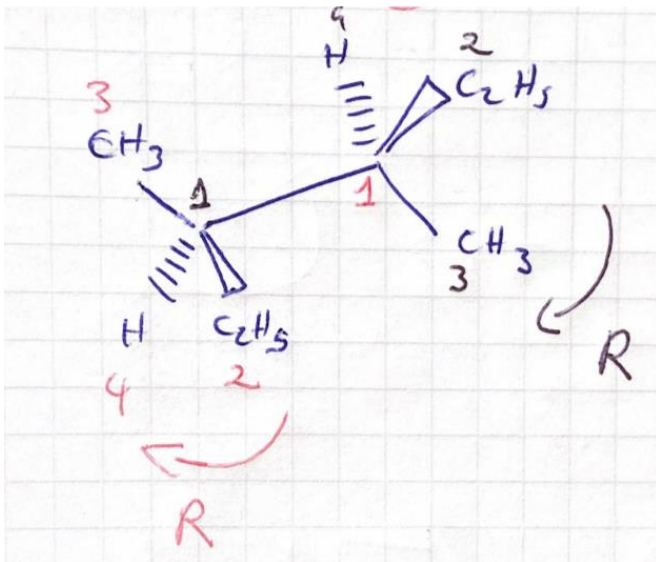 4
H
2
C₂H₅
3
CH₃
1
1
CH₃
3
H
C₂H₅
4
2
R
R